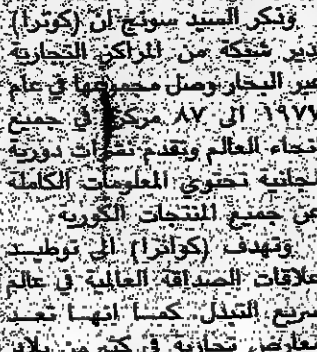 وذكر السيد سونج ان (كوترا)
تدير شبكة من المراكز التجارية
عبر البحار وصل مجموعها في عام
١٩٧٧ الى ٨٧ مركزا في جميع
انحاء العالم وتقدم نشرات دورية
مجانية تحتوي المعلومات الكاملة
عن جميع المنتجات الكورية
وتهدف (كواترا) الى توطيد
علاقات الصداقة العالمية في عالم
سريع التبدل كما انها تعد
معارض تجارية في كثير من بلاد